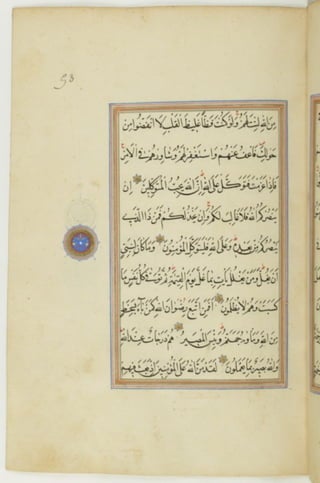 53
من الله لنت لهم ولو كنت فظا غليظ القلب لا انفضوا من
حولك فاعف عنهم واستغفر لهم وشاورهم في الامر
فاذا عزمت فتوكل على الله ان الله يحب المتوكلين ان
ينصركم الله فلا غالب لكم وان يخذلكم فمن ذا الذي
ينصركم من بعده وعلى الله فليتوكل المؤمنون وما كان لنبي
ان يغل ومن يغلل يات بما غل يوم القيمة ثم توفى كل نفس ما
كسبت وهم لا يظلمون افمن اتبع رضوان الله كمن باء بسخط
من الله وماويه جهنم وبئس المصير هم درجات عند الله
والله بصير بما يعملون لقد من الله على المؤمنين اذ بعث فيهم